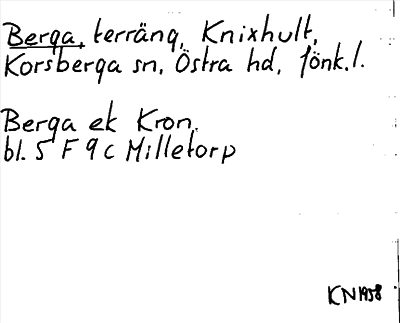 Berga, terräng, Knixhult,
Korsberga sn, Östra hd, Jönk.l.
Berga ek Kron.
bl. 5 F 9 c Milletorp
KN 1958